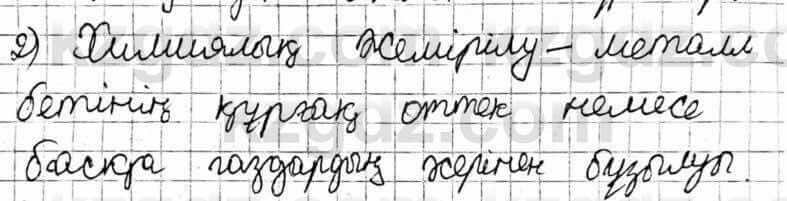 2) Химиялық жемірілу – металл
бетінің құрғақ оттек немесе
басқа газдардың әсерінен бұзылуы.